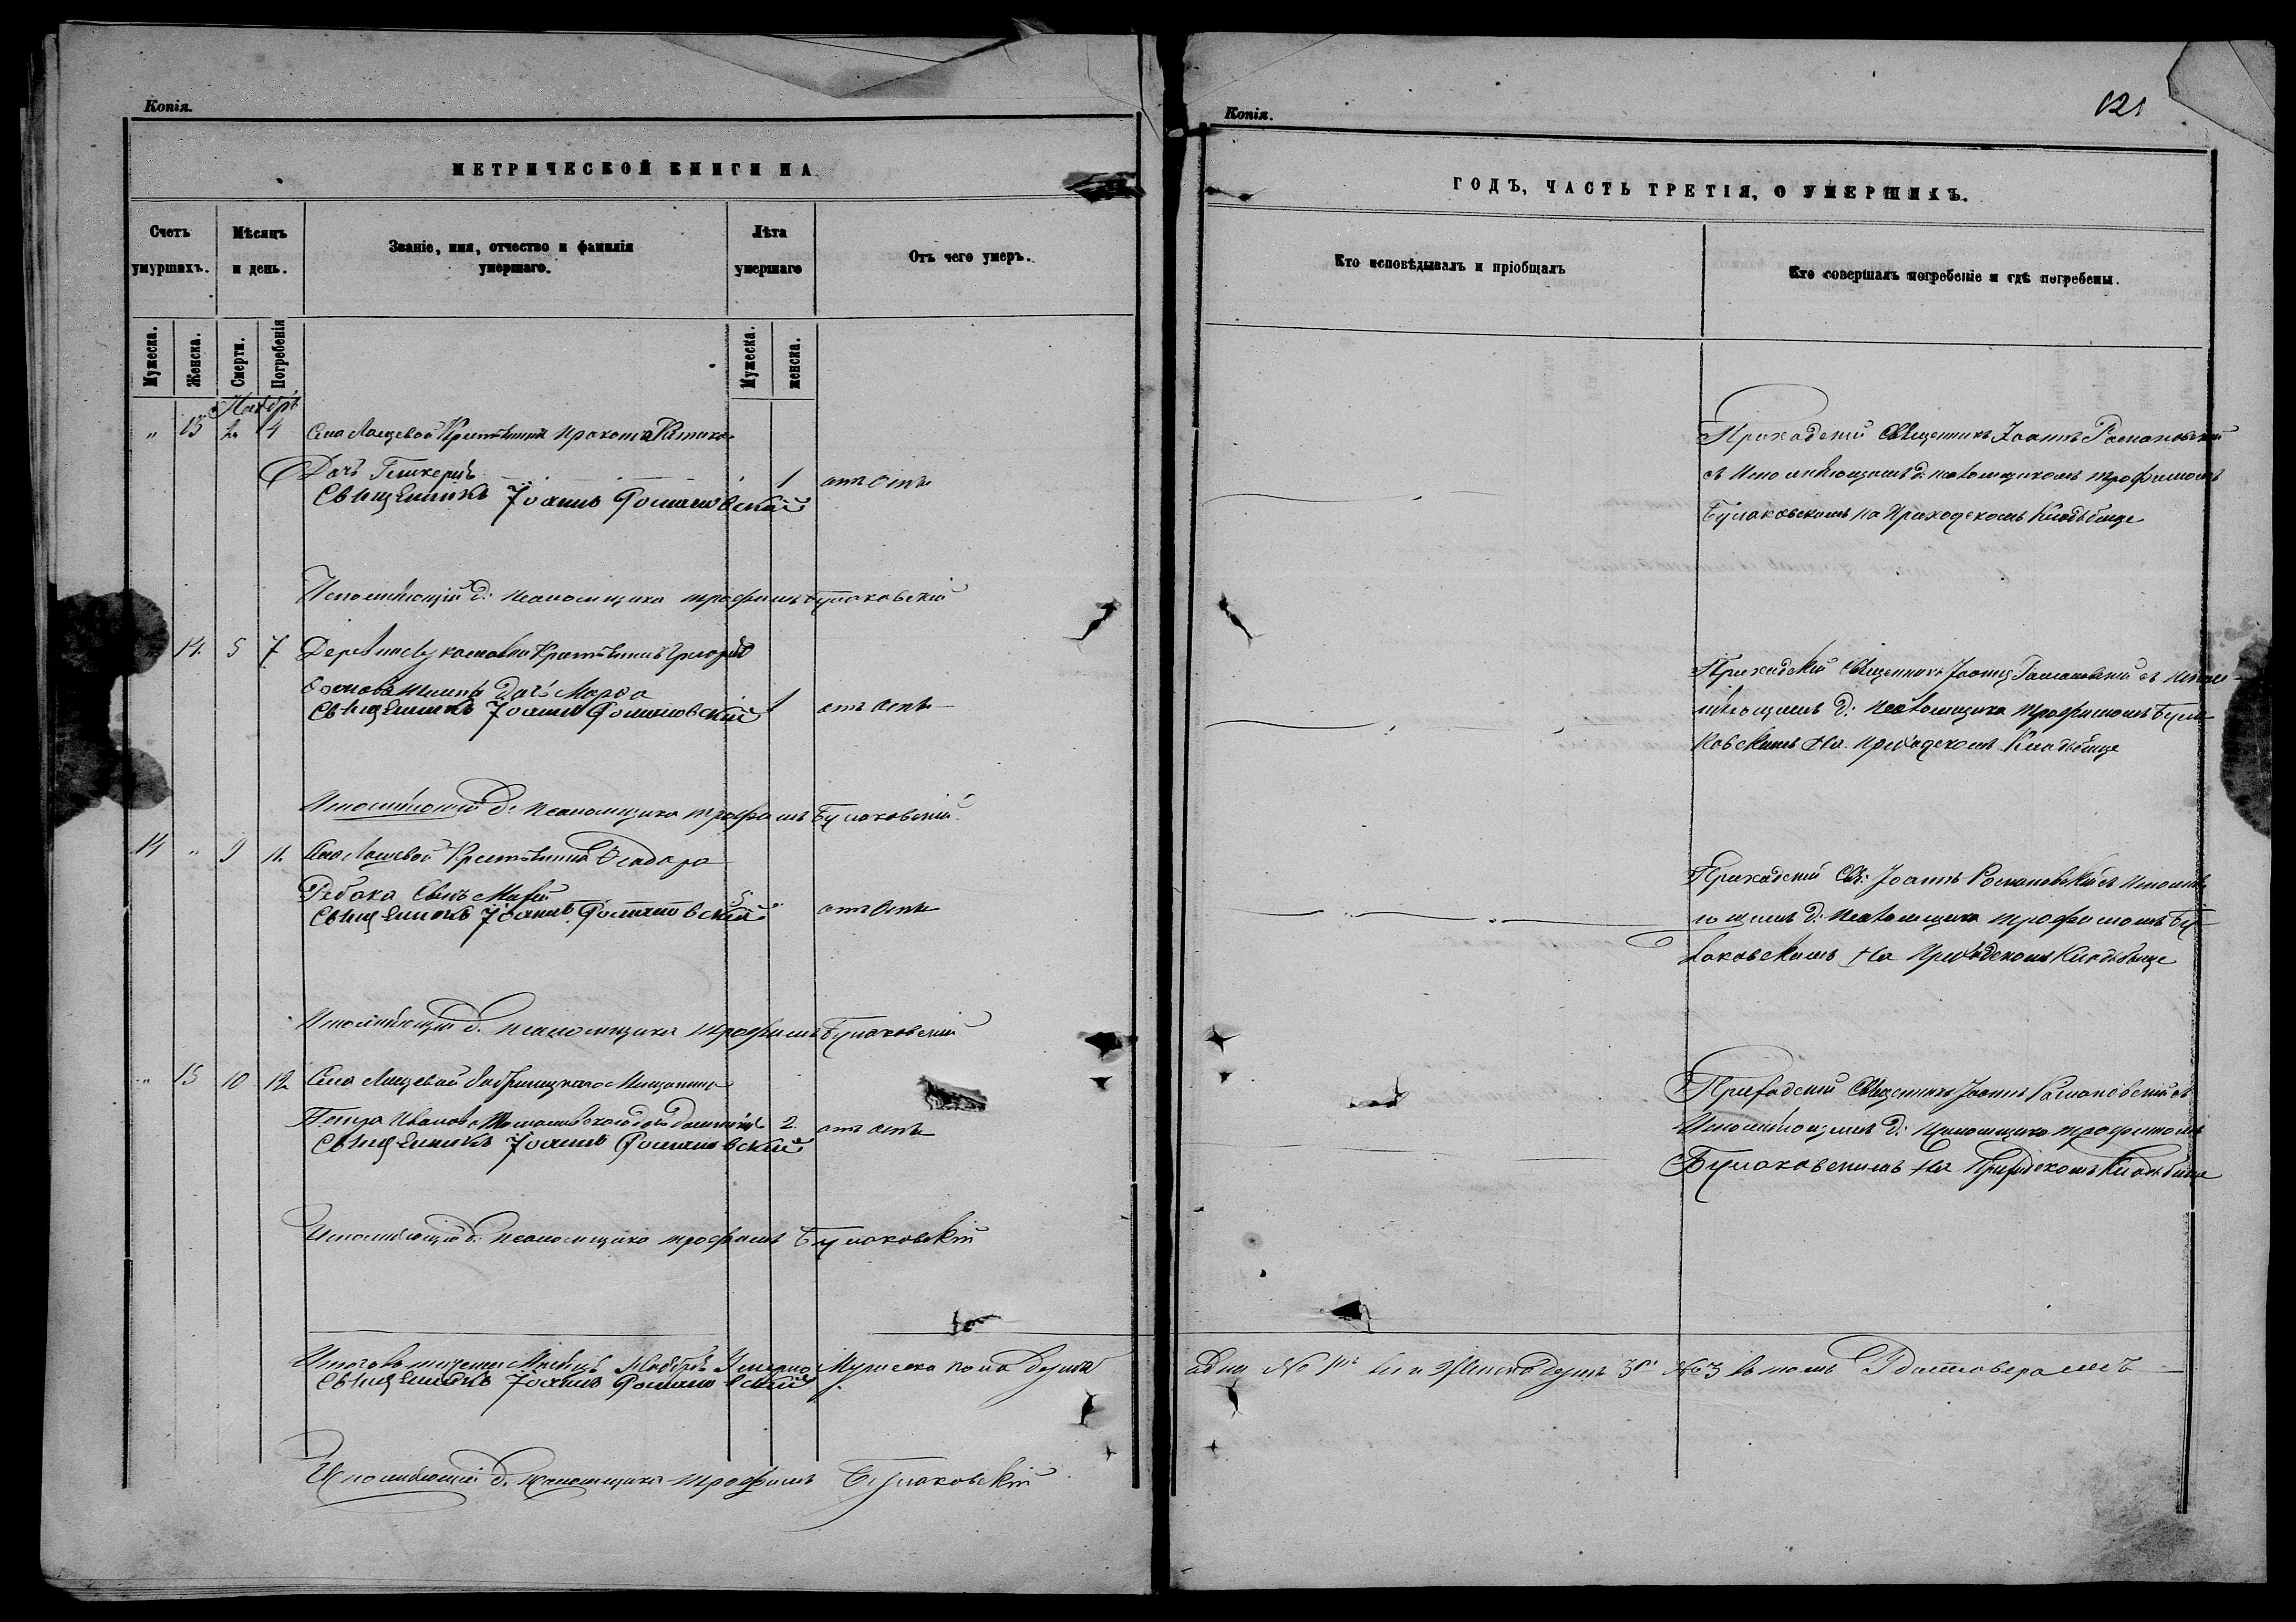 Копія.
МЕТРИЧЕСКОЙ КНИГИ НА
Счетъ умуршихъ.
Мѣсяцъ и день.
Званіе, имя, отчество и фамилія умершаго.
Лѣта умершаго
Отъ чего умеръ.
Мужеска.
Женска.
Смерти.
Погребенія
Мужеска.
женска.
Ноябрь
" 13 2 4 Села Лащевой Крестьянина Прокопа
Дочь Гликерія 1 отъ Оспы
Священникъ Іоаннъ Романовскій
Исполняющій д: псаломщика Трофимъ Булаковскій
14. 5 7 Крестьянина Григорія
Дочь Марфа 1 отъ Оспы
Священникъ Іоаннъ Романовскій
Исполняющій д: псаломщика Трофимъ Булаковскій
14 " 9 11. Села Лащевой Крестьянина Феодора
Рябока Сынъ 5 отъ Оспы
Священникъ Іоаннъ Романовскій
Исполняющій д. псаломщика Трофимъ Булаковскій
" 15 10 12 Села Лащевой Мещанина
Петра Иванова 2 отъ оспы
Священникъ Іоаннъ Романовскій
Исполняющій д: псаломщика Трофимъ Булаковскій
Итого въ теченіи Мѣсяца Ноября Умерло Мужеска пола душъ
Священникъ Іоаннъ Романовскій
Исполняющій д. псаломщика Трофимъ Булаковскій
Копія.
121
ГОДЪ, ЧАСТЬ ТРЕТІЯ, О УМЕРШИХЪ.
Кто исповѣдывалъ и пріобщалъ
Кто совершалъ погребеніе и гдѣ погребены.
Приходскій Священникъ Іоаннъ Романовскій
съ Исполняющимъ д: псаломщикомъ Трофимомъ
Булаковскимъ на Приходскомъ Кладбище
Приходскій Священникъ Іоаннъ Романовскій съ Испол-
няющимъ д: псаломщика Трофимомъ Була
ковскимъ На приходскомъ Кладбище
Приходскій Свя: Іоаннъ Романовскій съ Исполня
ющимъ д: псаломщика Трофимомъ Бу
лаковскимъ На Приходскомъ Кладбище
Приходскій Священникъ Іоаннъ Романовскій съ
Исполняющимъ д: псаломщика Трофимомъ
Булаковскимъ На Приходскомъ Кладбище
одна № 1 и Женска душъ 3 № 3 въ томъ